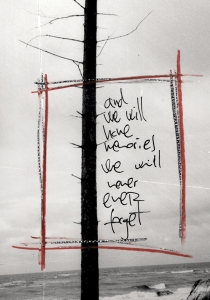 and
we will
have
memories
we will
never
ever
forget